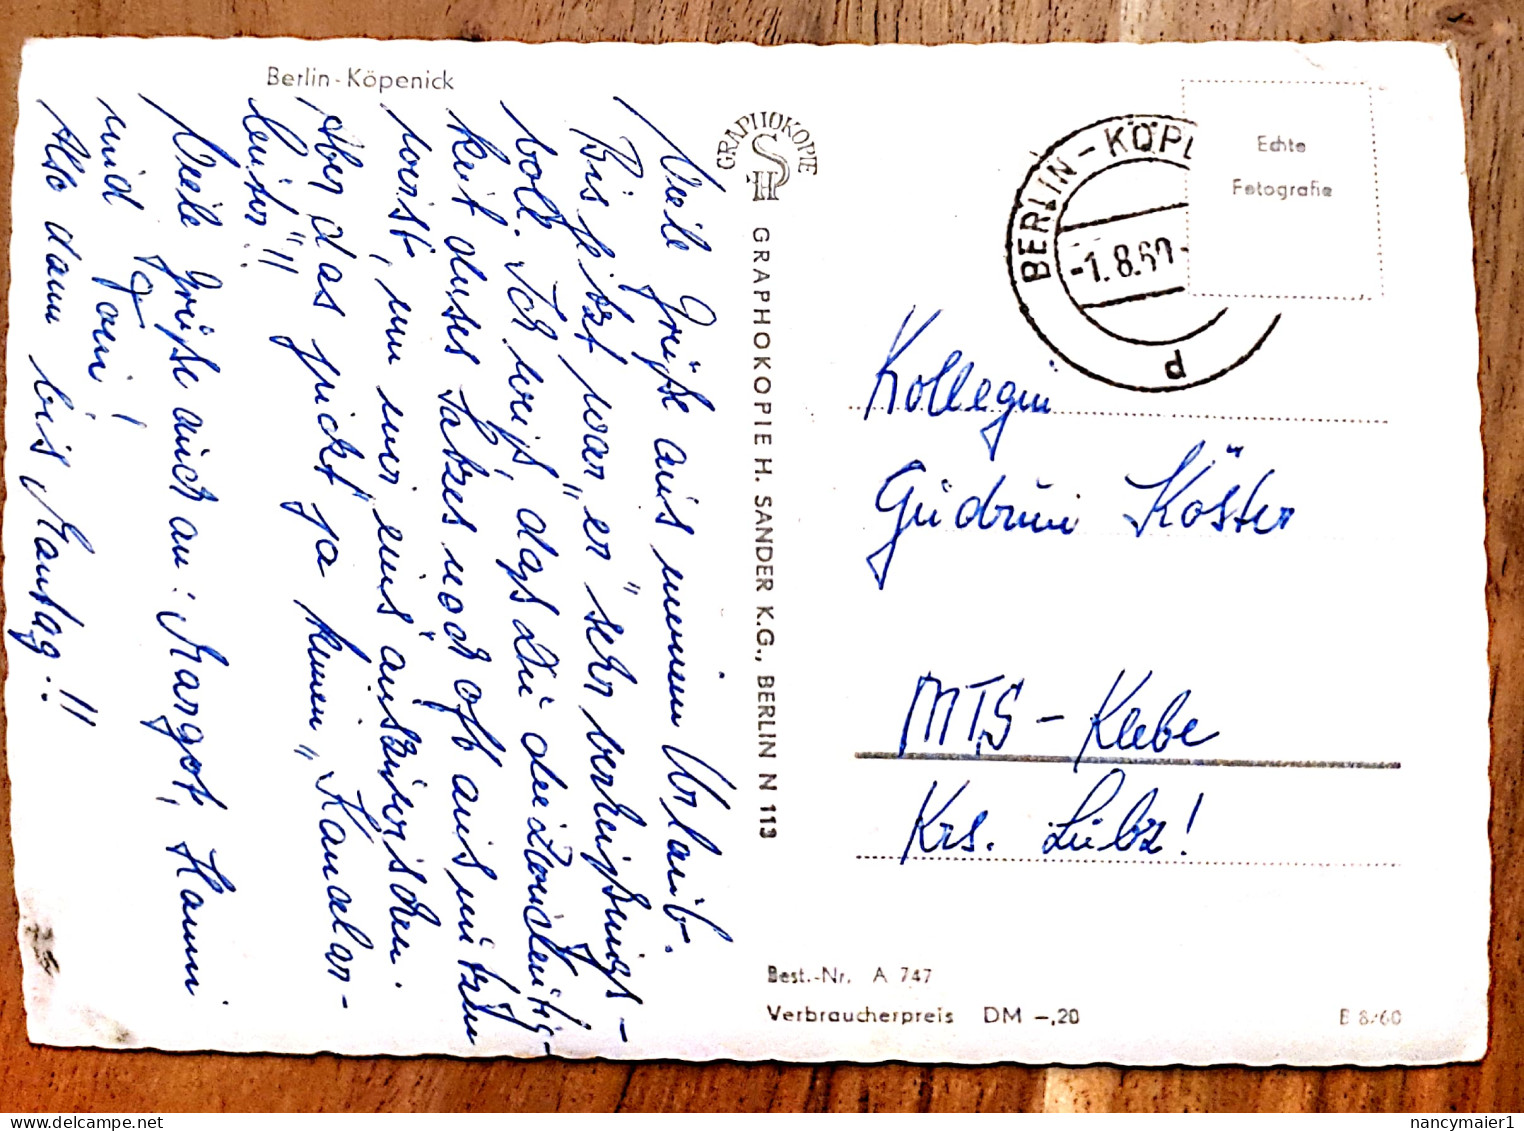 Berlin-Köpenick
Viele Grüße aus meinem Urlaub.
Bis jetzt war „er“ sehr verheißungs-
voll. Ich weiß, daß Du die Zweideutig-
keit dieses Satzes noch oft ausnützen
wirst, um mir „eins“ auszuwischen.
Aber das juckt ja keinen „Kandelar-
Viele Grüße auch an: Margot, Hanni
und Toni!
Also dann bis Montag!!
GRAPHOKOPIE
SH
GRAPHOKOPIE H. SANDER K.G., BERLIN N 113
BERLIN-KÖP
-1.8.60-
d
Echte
Fotografie
Kollegin
Gudrun Köster
MTS - Klebe
Krs. Lübz!
Best.-Nr. A 747
Verbraucherpreis DM -,20
B 8/60
nancymaier1